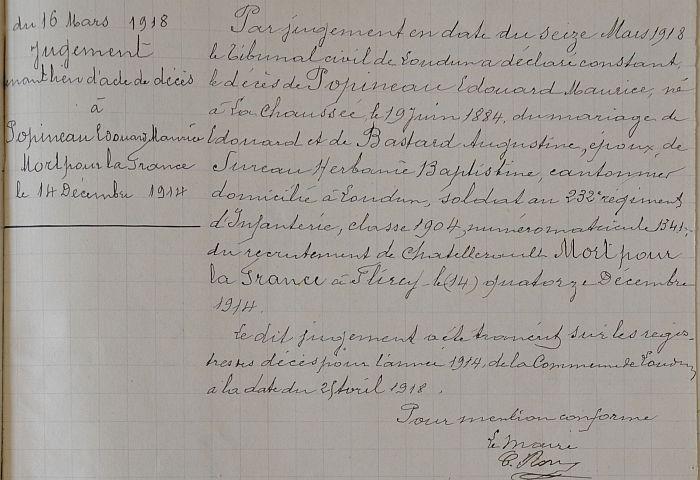 du 16 Mars 1918
Jugement
tenant lieu d'acte de décès
à
Popineau Edouard Maurice
Mort pour la France
le 14 Décembre 1914
Par jugement en date du seize Mars 1918
le Tribunal civil de Loudun a déclaré constant,
le décès de Popineau Edouard Maurice, né
à La Chaussée, le 19 Juin 1884, du mariage de
Edouard et de Bastard Augustine, époux de
Tureau Herbanie Baptistine, cantonnier
domicilié à Loudun, soldat au 232e régiment
d'Infanterie, classe 1904, numéro matricule 1341,
du recrutement de Chatellerault Mort pour
la France à Flirey le (14) quatorze Décembre
1914.
Le dit jugement a été transcrit sur les regis-
tres des décès pour l'année 1914, de la Commune de Loudun
à la date du 25 Avril 1918.
Pour mention conforme
Le Maire